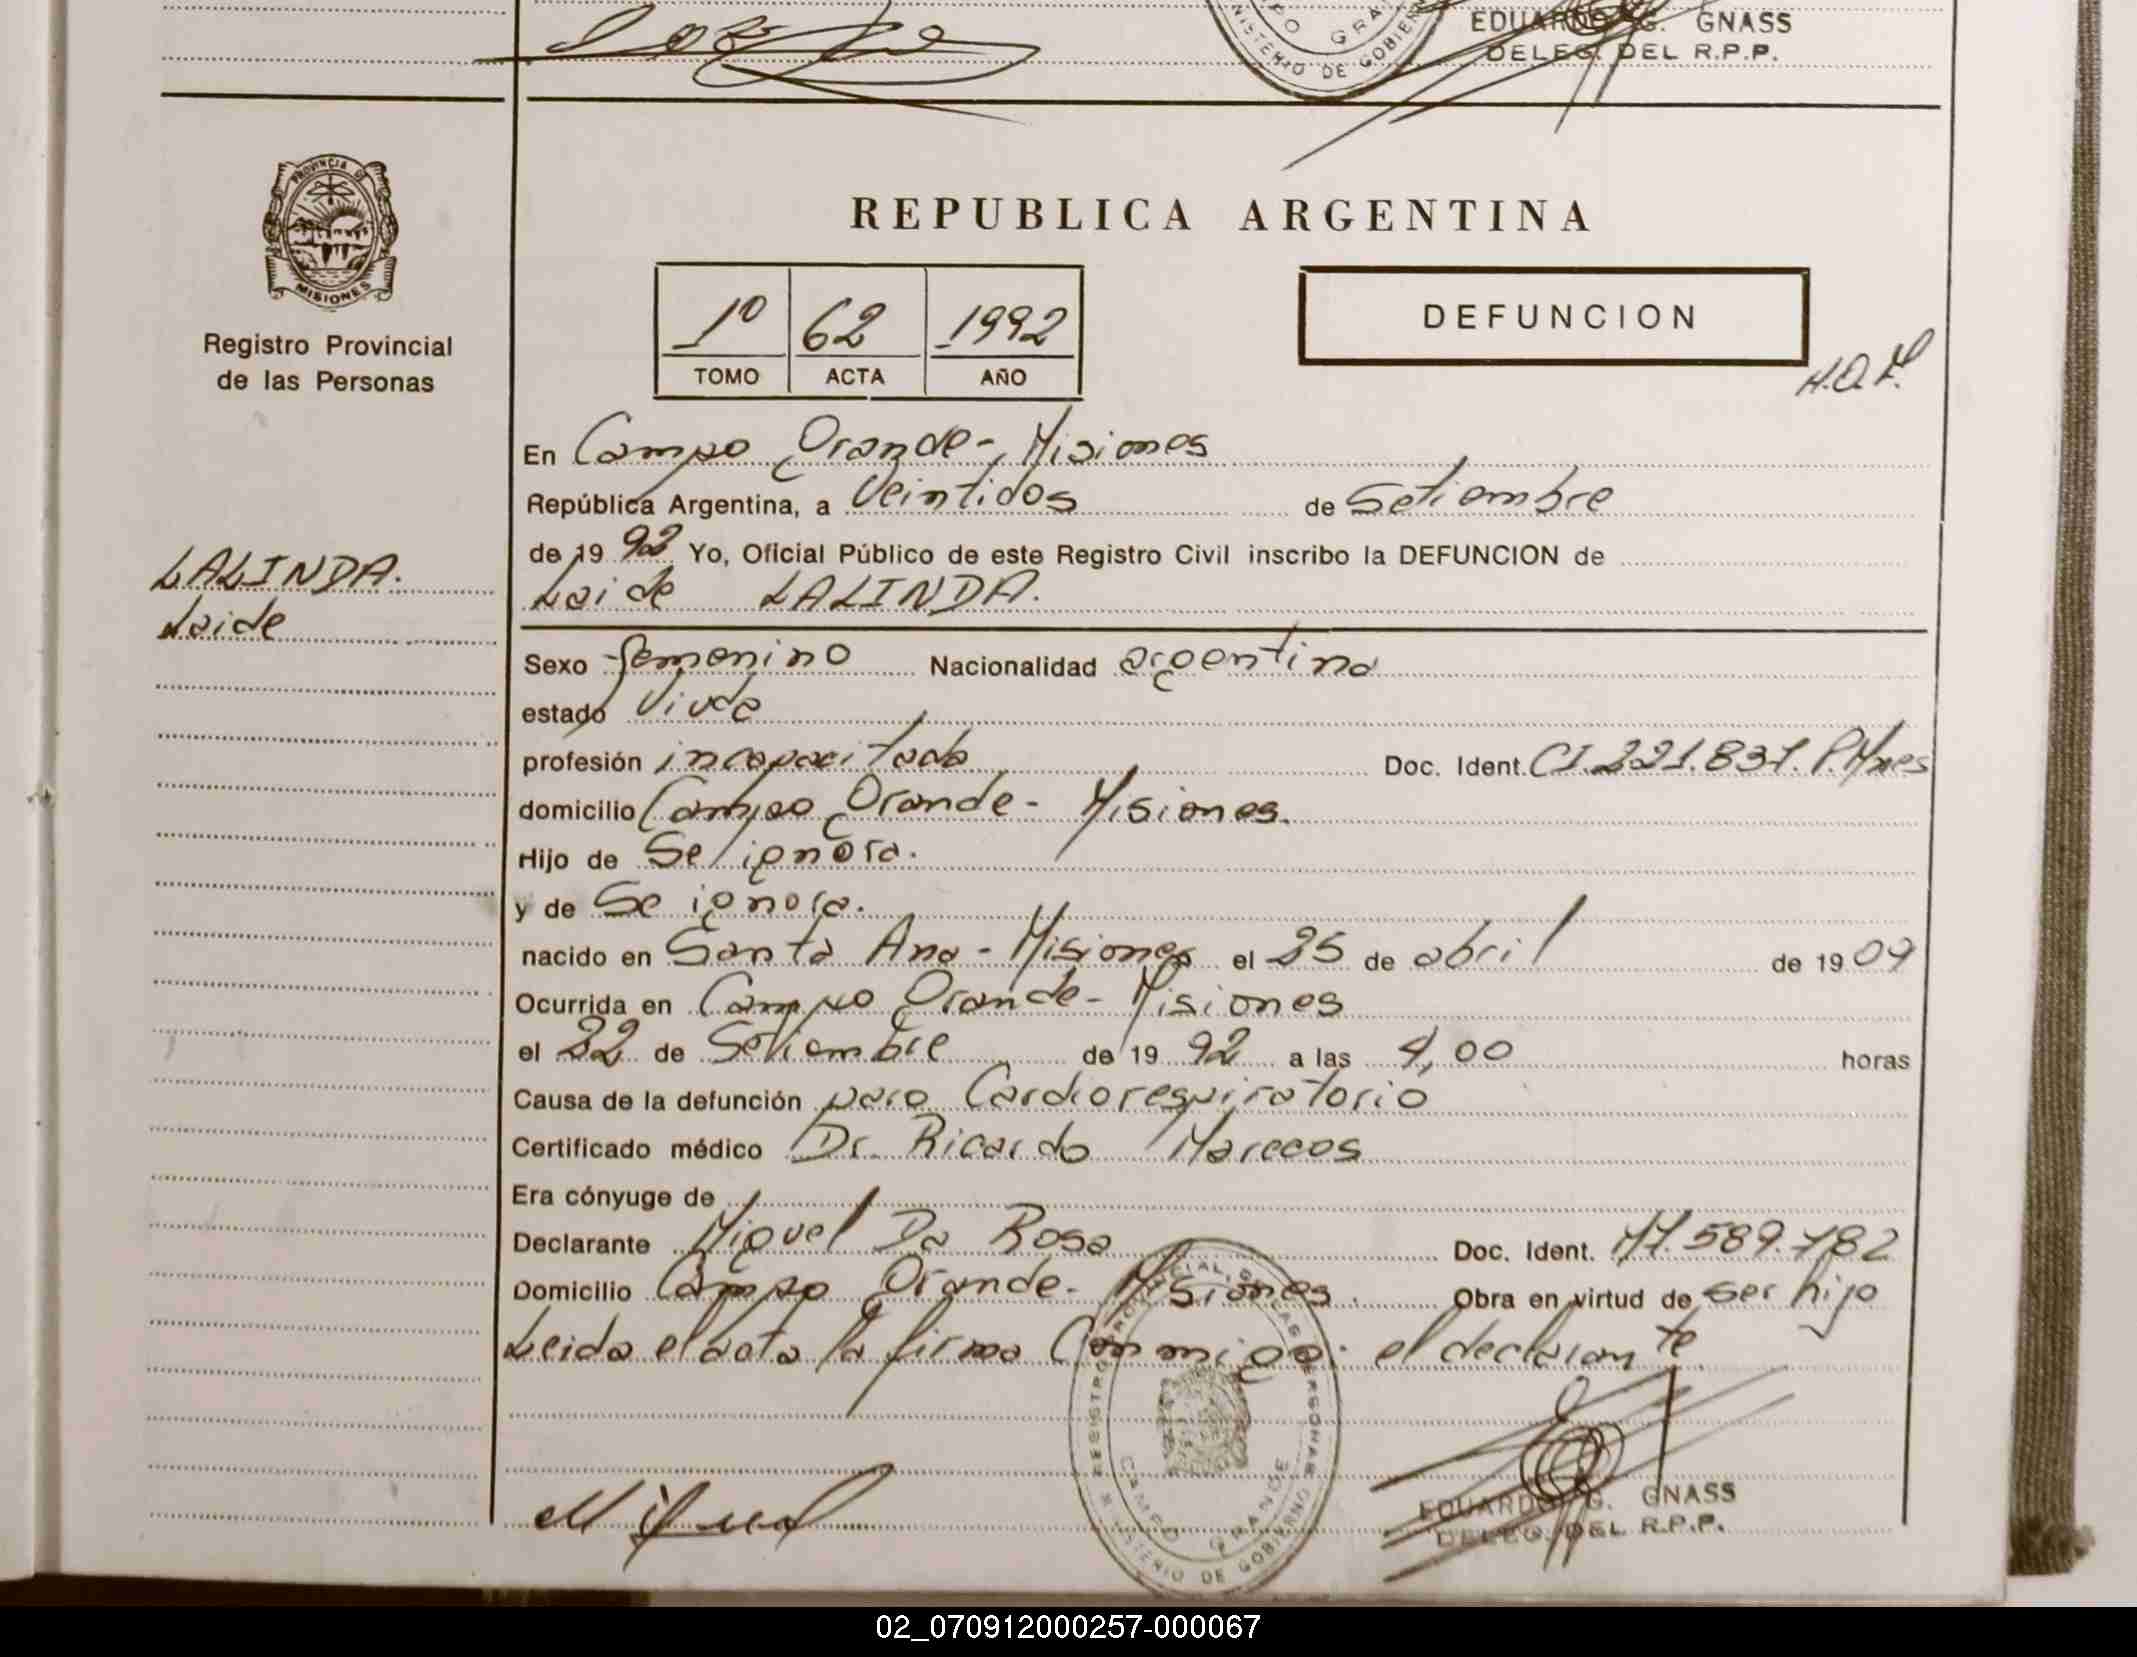 EDUARDO G. GNASS
DELEG. DEL R.P.P.
MINISTERIO DE GOBIERNO
PROVINCIA DE
MISIONES
Registro Provincial
de las Personas
REPUBLICA ARGENTINA
1º 62 1992
TOMO ACTA AÑO
DEFUNCION
En Campo Grande - Misiones
República Argentina, a Veintidos de Setiembre
de 19 92 Yo, Oficial Público de este Registro Civil inscribo la DEFUNCION de
LALINDA.
Laide
Laide LALINDA.
Sexo femenino Nacionalidad argentina
estado Viuda
profesión incapacitada Doc. Ident. CI. 221.837. P. Mnes
domicilio Campo Grande - Misiones.
Hijo de Se ignora.
y de Se ignora.
nacido en Santa Ana - Misiones el 25 de abril de 19 09
Ocurrida en Campo Grande - Misiones
el 22 de Setiembre de 19 92 a las 4,00 horas
Causa de la defunción paro Cardiorespiratorio
Certificado médico Dr. Ricardo Marecos
Era cónyuge de
Declarante Miguel Da Rosa Doc. Ident. 17.589.782
Domicilio Campo Grande - Misiones. Obra en virtud de ser hijo
Leida el acta la firma Conmigo: el declarante
REGISTRO PROVINCIAL DE LAS PERSONAS
CAMPO GRANDE
MINISTERIO DE GOBIERNO
Miguel
EDUARDO G. GNASS
DELEG. DEL R.P.P.
02_070912000257-000067